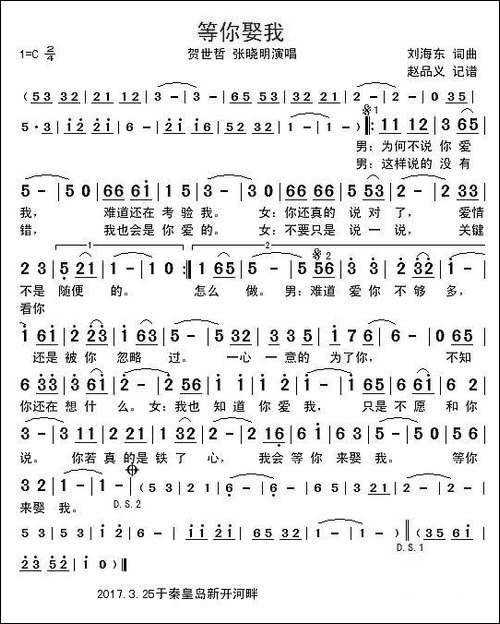 等你娶我
1=C 2/4 贺世哲 张晓明演唱 刘海东 词曲
赵品义 记谱
(53 53 | 32 21 12 | 3 - | 3 - | 65 35 | 53 21 12 | 2 - | 2 - | 0 35 |
5·3 | i 2 2 i | 6 - | 6 - | i i 6 i | 5 35 | 6 53 32 | 1 - | 1 - ) ‖: 11 12 | 3 65 |
男:为何不说 你 爱
男:这样说的 没 有
5 - | 5 0 | 66 6i | 1 5 | 3 - | 3 0 | 66 6i | 5 53 | 2 - | 2 33 |
我, 难道还在 考 验 我。 女:你还真的 说 对 了, 爱情
错, 我也会是 你 爱 的。 女:不要只是 说 一 说, 关键
1 2
2 3 | 5 21 | 1 - | 1 0 :‖ 1 65 | 5 - | 5 56 | 3 3 | 2 32 | 1 - | 1 60 |
不是 随便 的。 怎么 做。 男:难道 爱 你 不 够 多,
看你
1 61 | 2 23 | 1 63 | 5 - | 5 - | 3 53 | 3 35 | 1 76 | 6 - | 6 - | 5 5 |
还是 被 你 忽略 过。 一心 一 意的 为了你, 不知
6 33 | 3 61 | 2 - | 2 56 | 5 1 | 1 63 | 5 - | 5 - | 65 61 | 6 2 |
你还在 想什 么。女:我也 知道 你爱 我, 只是 不愿 和你
3 - | 3 11 | 22 21 | 1 32 | 2 - | 2 16 | 6 1 | 1 63 | 5 - | 5 0 | 5 6 |
说。 你若 真的是 铁 了 心, 我会 等你 来娶 我。 等你
3 2 | 1 - | 1 - | (53 53 | 2 1 2 | 6 - | 6 - | 65 35 | 3 2 1 | 2 - | 2 - |
来娶 我。 D.S.2
53 53 | i 2 i | 6 - | i i 6 i | 5 3 5 | 6 53 32 | 1 - | 1 - ) ‖ (35 61 |
D.S.1
23 52 | i 0 | i 0) ‖
2017.3.25于秦皇岛新开河畔